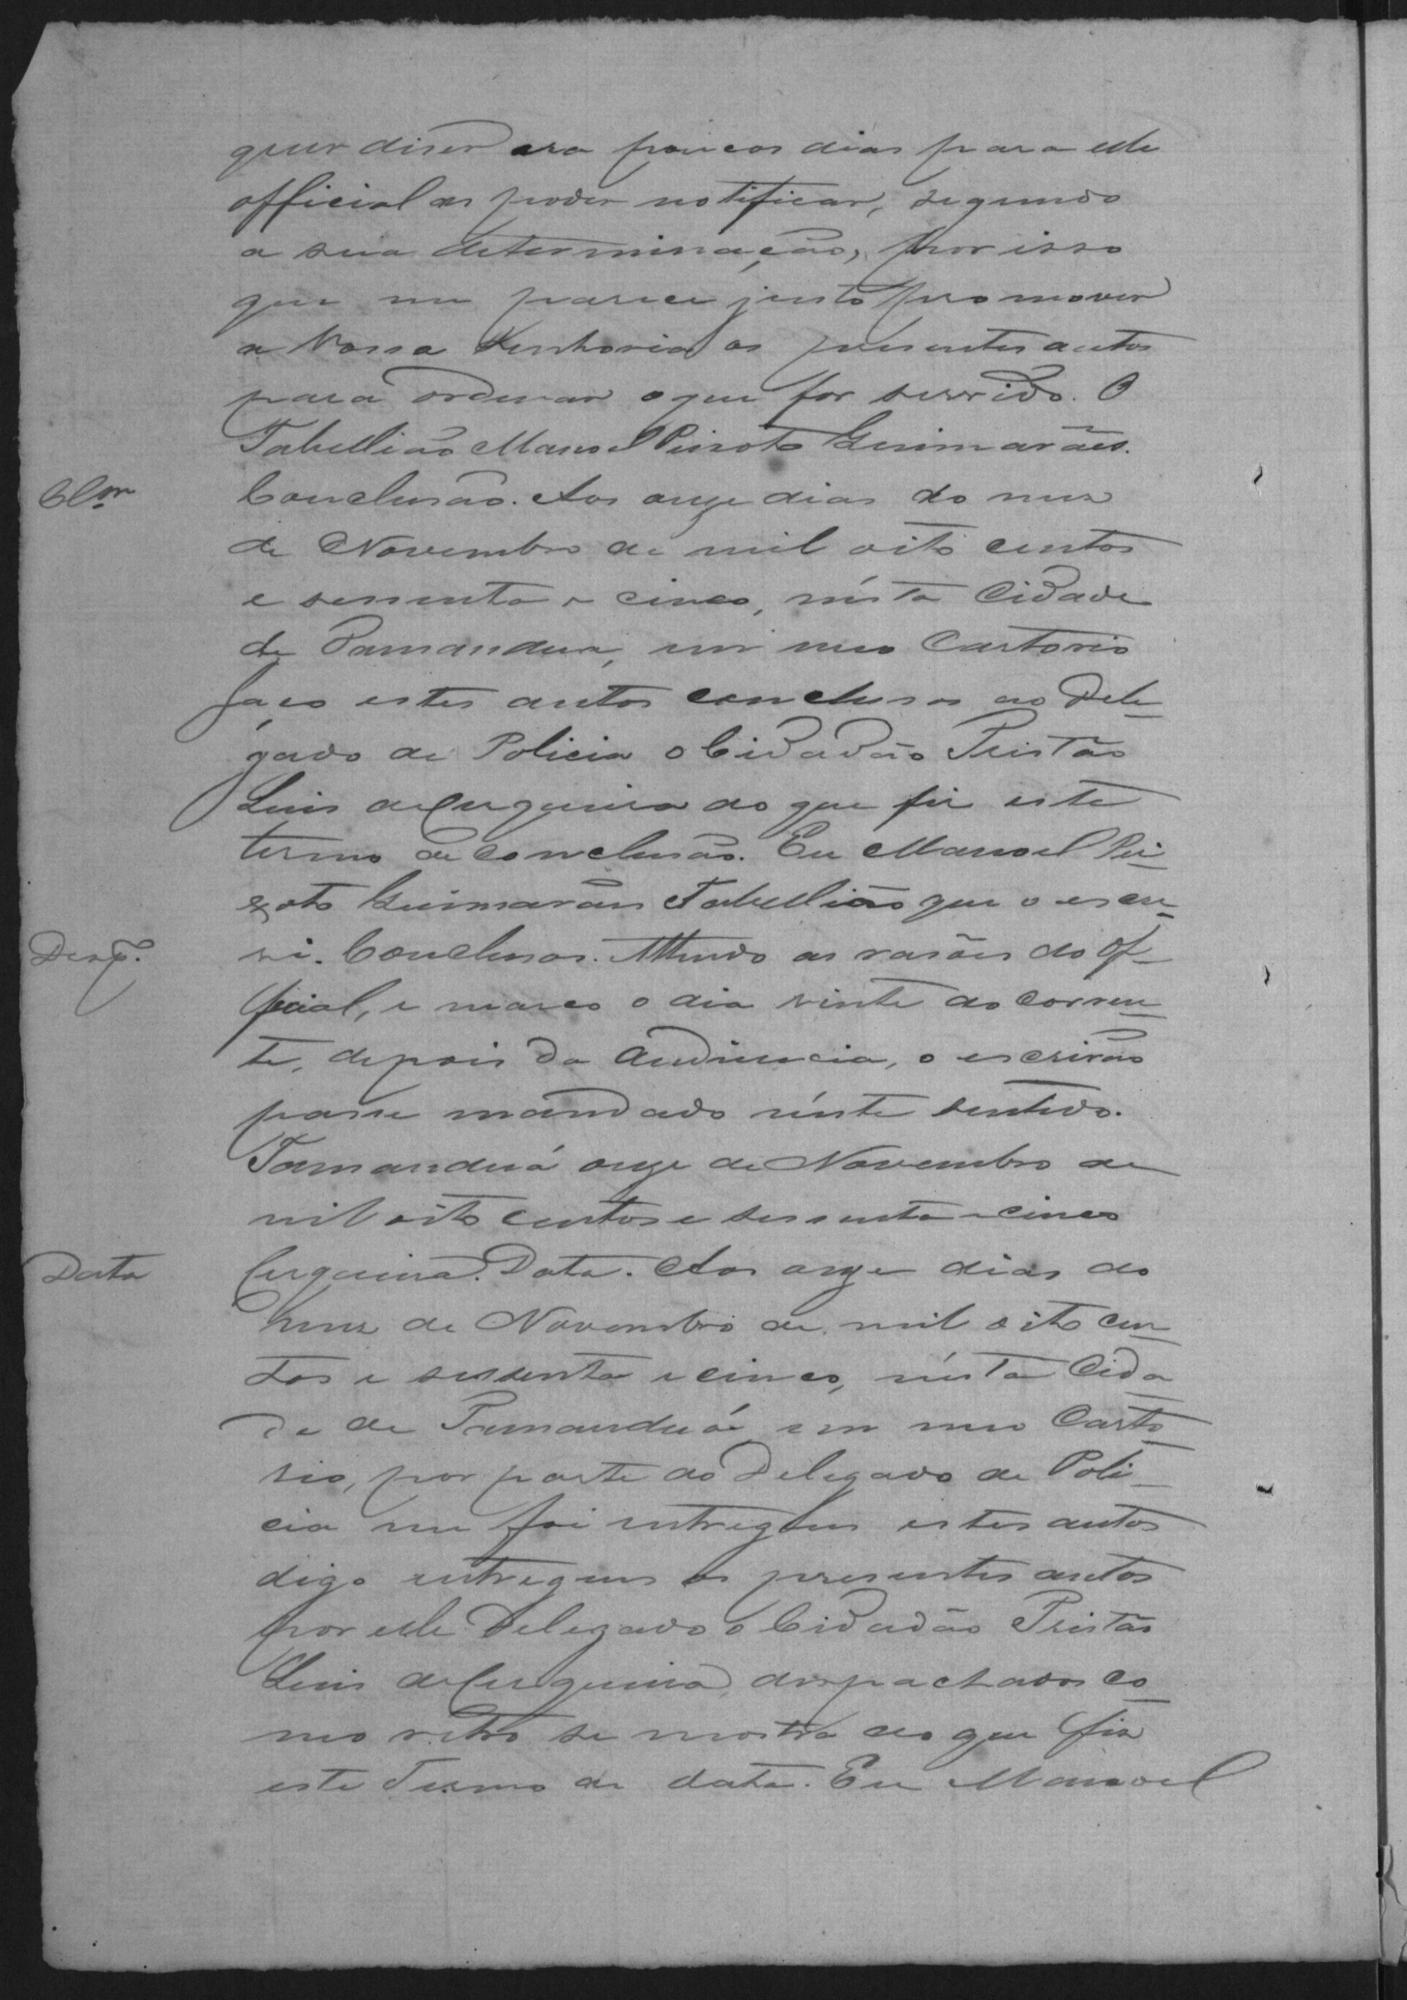 quer diser era poucos dias para elle
official os poder notificar, segundo
a sua determinação, por isso
que me parece justo promover
a Vossa Senhoria os presentes autos
para ordenar o que for servido. O
Tabellião Manoel Peixoto Guimarães.
Clm Conclusão. Aos onze dias do mez
de Novembro de mil oito centos
e sessenta e cinco, nésta Cidade
de Tamandua, em meo Cartorio
faço estes autos conclusos ao Dele-
gado de Policia o Cidadão Tristão
Luis de Cerqueira do que fiz este
termo de conclusão. Eu Manoel Pei-
xoto Guimarães Tabellião que o escre-
vi. Conclusos. Attendo as rasões do Of-
Desp.
ficial, e marco o dia vinte do corren-
te, depois da audiencia, o escrivão
passe mandado néste sentido.
Tamanduá onze de Novembro de
mil oito centos e sessenta e cinco
Data Cerqueira. Data. Aos onze dias do
mez de Novembro de mil oito cen-
tos e sessenta e cinco, nésta Cida
de de Tamanduá em meo Carto
rio, por parte do Delegado de Poli-
cia me foi entregue estes autos
digo entregues os presentes autos
por elle Delegado o Cidadão Tristão
Luis de Cerqueira, despachados co-
mo retro se mostra do que fiz
este Termo de data. Eu Manoel